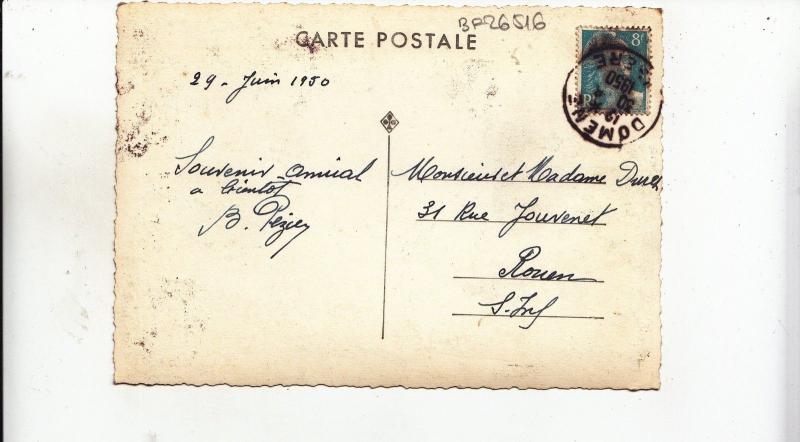 BF26516
CARTE POSTALE
8f
ISERE
1950
30
12
DOMENE
29 - Juin 1950
Souvenir amical
a bientot
B.
Monsieur et Madame
31 Rue Jouvenet
Rouen
S. Inf